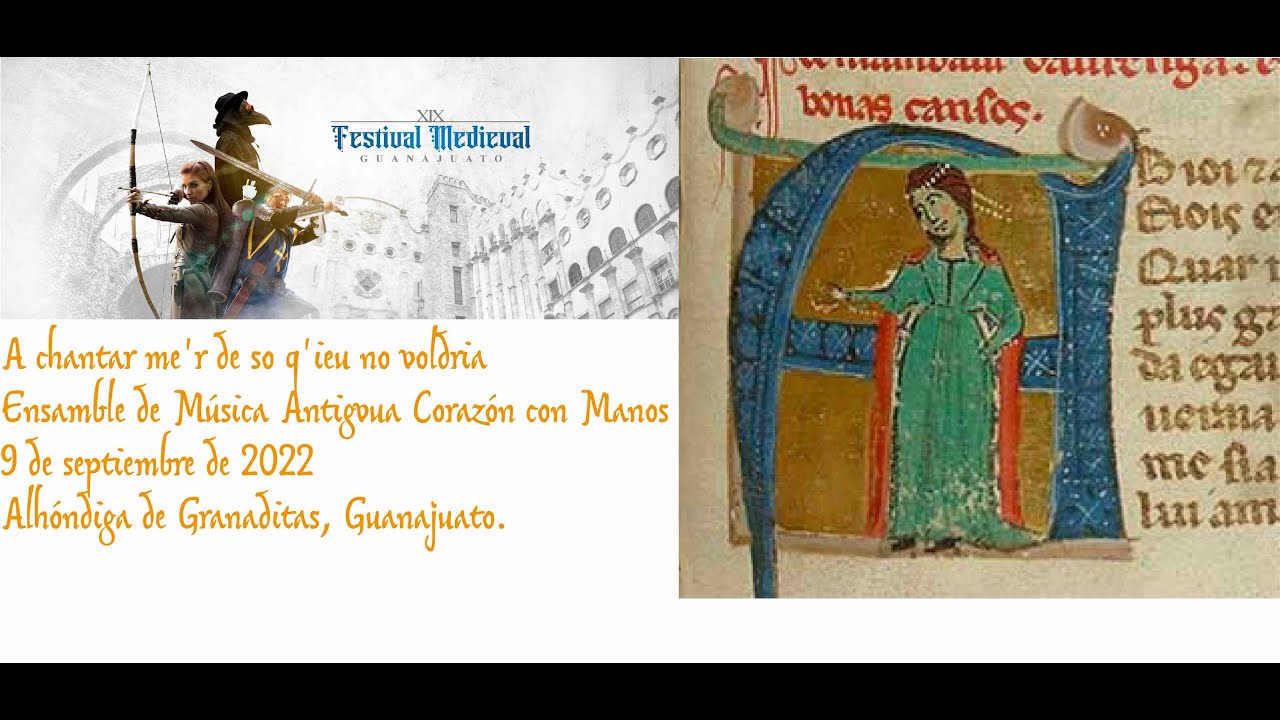 XIX
Festival Medieval
GUANAJUATO
A chantar me'r de so q'ieu no voldria
Ensamble de Música Antigoua Corazón con Manos
9 de septiembre de 2022
Alhóndiga de Granaditas, Guanajuato.
bonas cansos.
Quar
plus ga
da egau
me sia
lui am